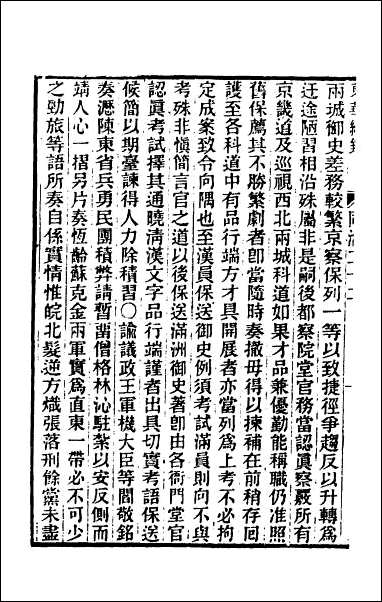 兩城御史差務較繁京察保列一等以致捷徑爭趨反以升轉爲
迂途陋習相沿殊屬非是嗣後都察院堂官務當認眞察覈所有
京畿道及巡視西北兩城科道如果才品兼優勤能稱職仍准照
舊保薦其不勝繁劇者卽當隨時奏撤毋得以揀補在前稍存囘
護至各科道中有品行端方才具開展者亦當列爲上考不必拘
定成案致令向隅也至漢員保送御史例須考試滿員則向不與
考殊非愼簡言官之道以後保送滿洲御史著卽由各衙門堂官
認眞考試擇其通曉淸漢文字品行端謹者出具切實考語保送
候簡以期臺諫得人力除積習○諭議政王軍機大臣等閻敬銘
奏瀝陳東省兵勇民團積弊請暫留僧格林沁駐紮以安反側而
靖人心一摺另片奏恆齡蘇克金兩軍實爲直東一帶必不可少
之勁旅等語所奏自係實情惟皖北髮逆方熾張落刑餘黨未盡